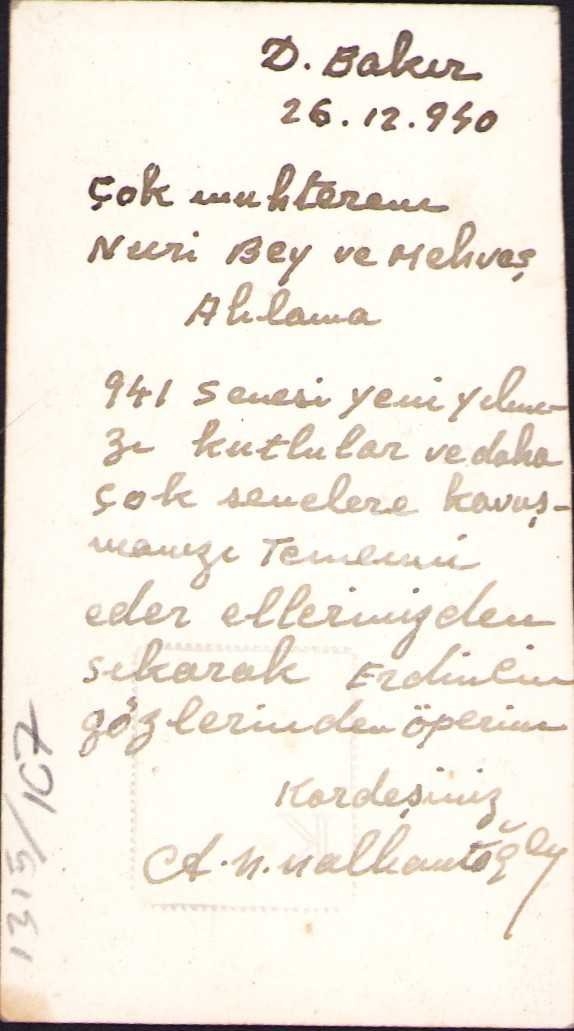 D. Bakır
26.12.940
Çok muhterem
Nuri Bey ve Mehveş
Ablama
941 Senesi yeni yılını-
zı kutlular ve daha
çok senelere kavuş-
manızı Temenni
eder ellerinizden
sıkarak Erdincin
gözlerinden öperim
Kardeşiniz
A. N. Nalbantoğlu
1315/107